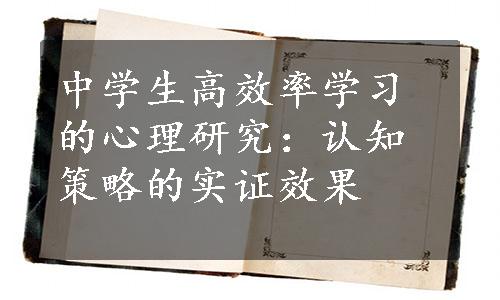 中学生高效率学习
的心理研究：认知
策略的实证效果